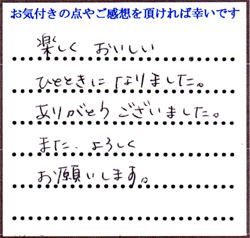 お気付きの点やご感想を頂ければ幸いです
楽しく おいしい
ひとときになりました。
ありがとうございました。
また、よろしく
お願いします。